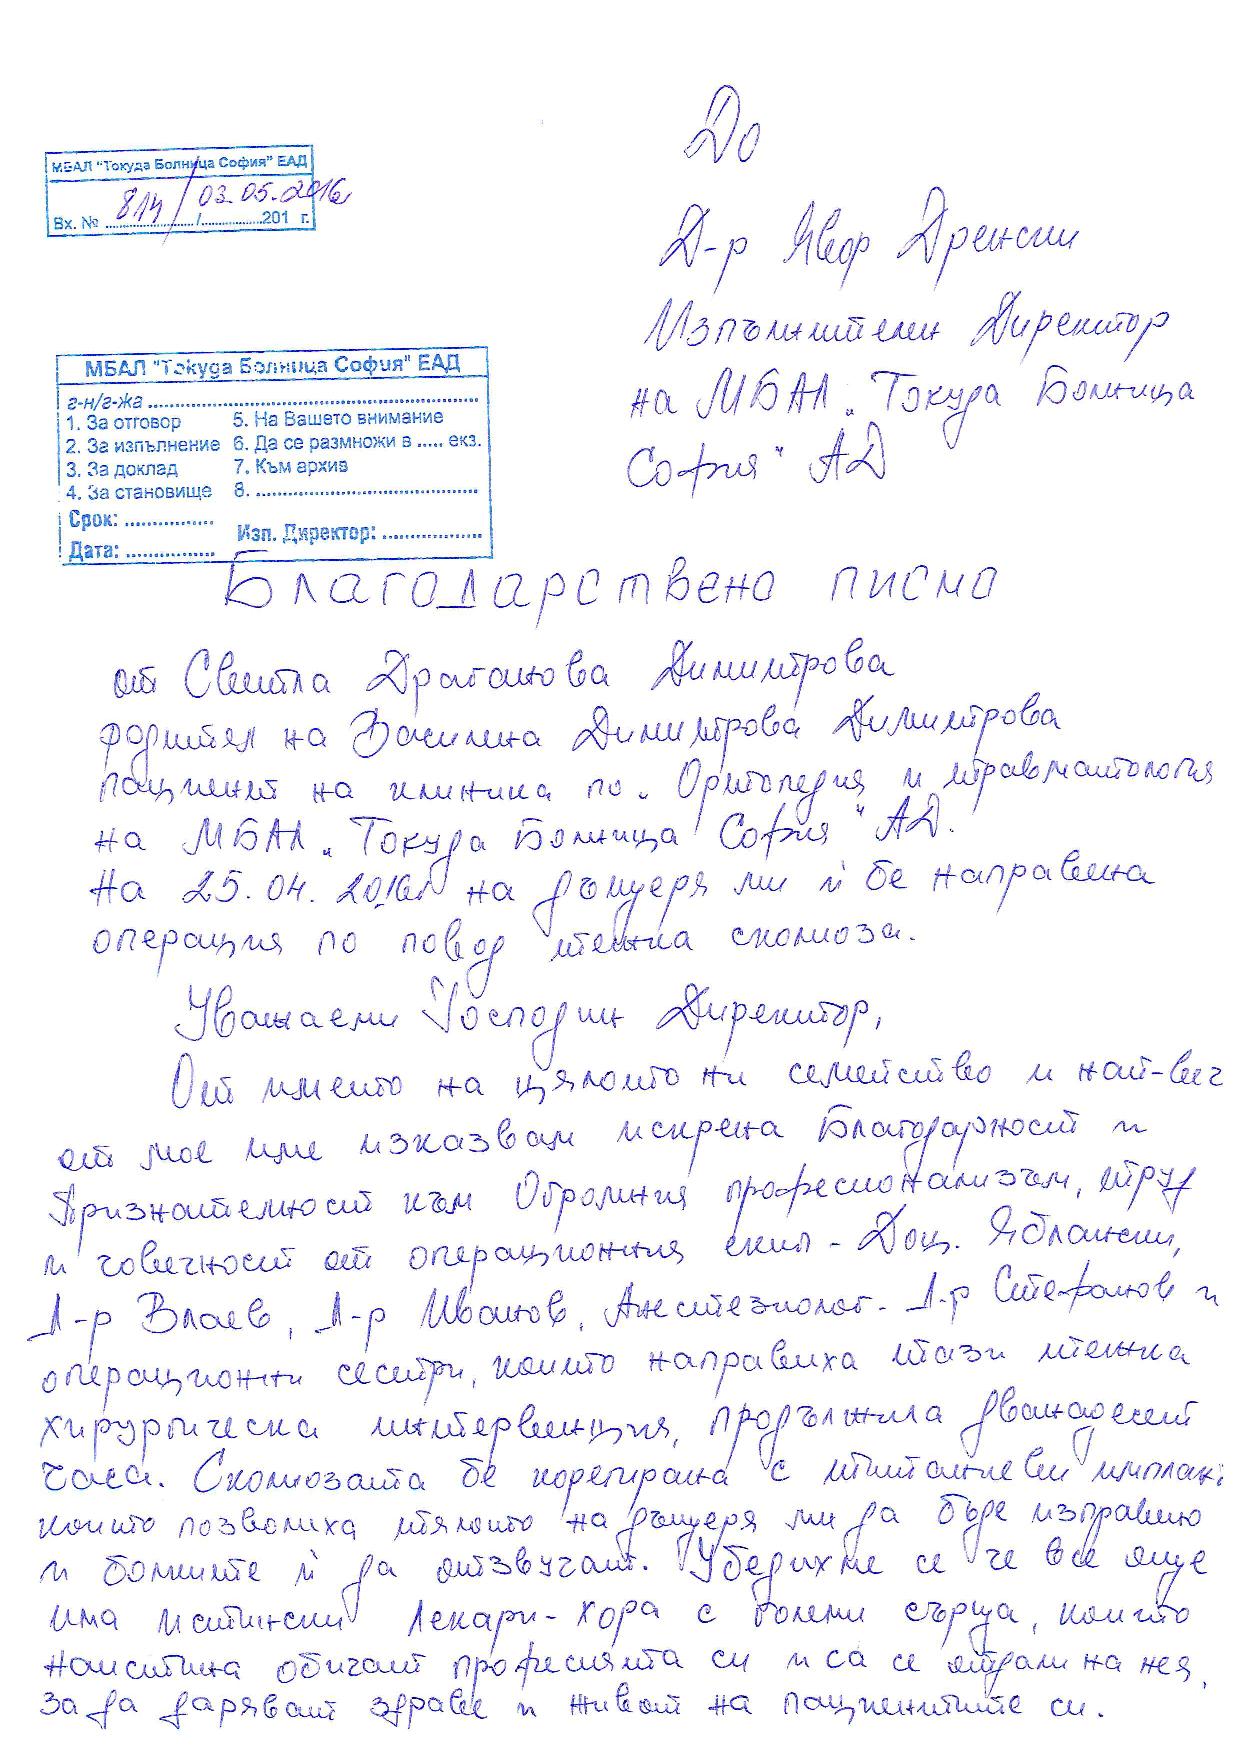 До
МБАЛ "Токуда Болница София" ЕАД
Вх. № 814 / 03.05.2016 201 г.
Д-р Явор Дренски
Изпълнителен Директор
на МБАЛ „Токуда Болница
София" АД
МБАЛ "Токуда Болница София" ЕАД
г-н/г-жа ........................................
1. За отговор 5. На Вашето внимание
2. За изпълнение 6. Да се размножи в ..... екз.
3. За доклад 7. Към архив
4. За становище 8. ........................................
Срок: ............... Изп. Директор: .................
Дата: ...............
Благодарствено писмо
от Светла Драганова Димитрова
родител на Василена Димитрова Димитрова
пациент на клиника по „Ортопедия и травматология
на МБАЛ „Токуда Болница София" АД.
На 25.04.2016г на дъщеря ми ѝ бе направена
операция по повод тежка сколиоза.
Уважаеми Господин Директор,
От името на цялото ни семейство и най-веч
от мое име изказвам искрена благодарност и
Признателност към Огромния професионализъм, труд
и човечност от операционния екип - Доц. Яблански,
Д-р Влаев, Д-р Иванов, Анестезиолог- Д-р Стефанов и
операционни сестри, които направиха тази тежка
хирургическа интервенция, продължила дванадесет
часа. Сколиозата бе корегирана с титаниеви имплант
които позволиха тялото на дъщеря ми да бъде изправено
и болките ѝ да отзвучат. Убедихме се че все още
има истински Лекари-хора с големи сърца, които
наистина обичат професията си и са се отдали на нея,
за да даряват здраве и живот на пациентите си.